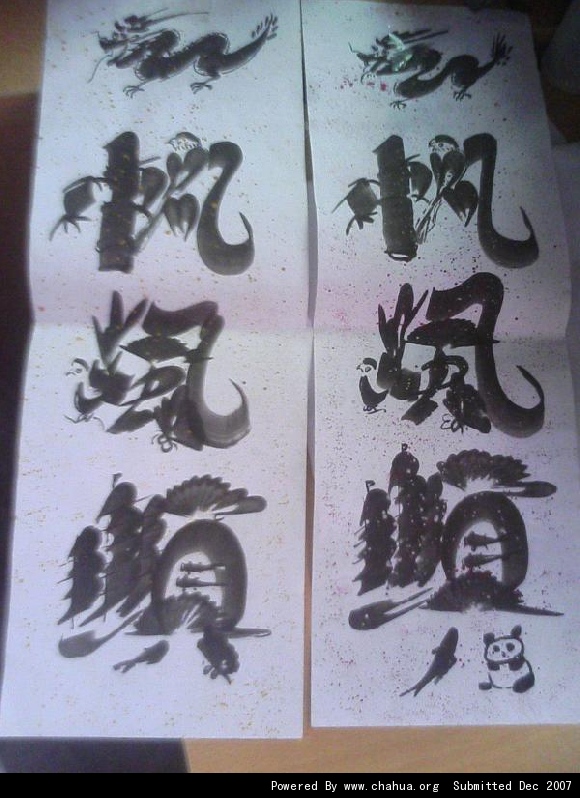 一帆風順
一帆風順
Powered By www.chahua.org Submitted Dec 2007